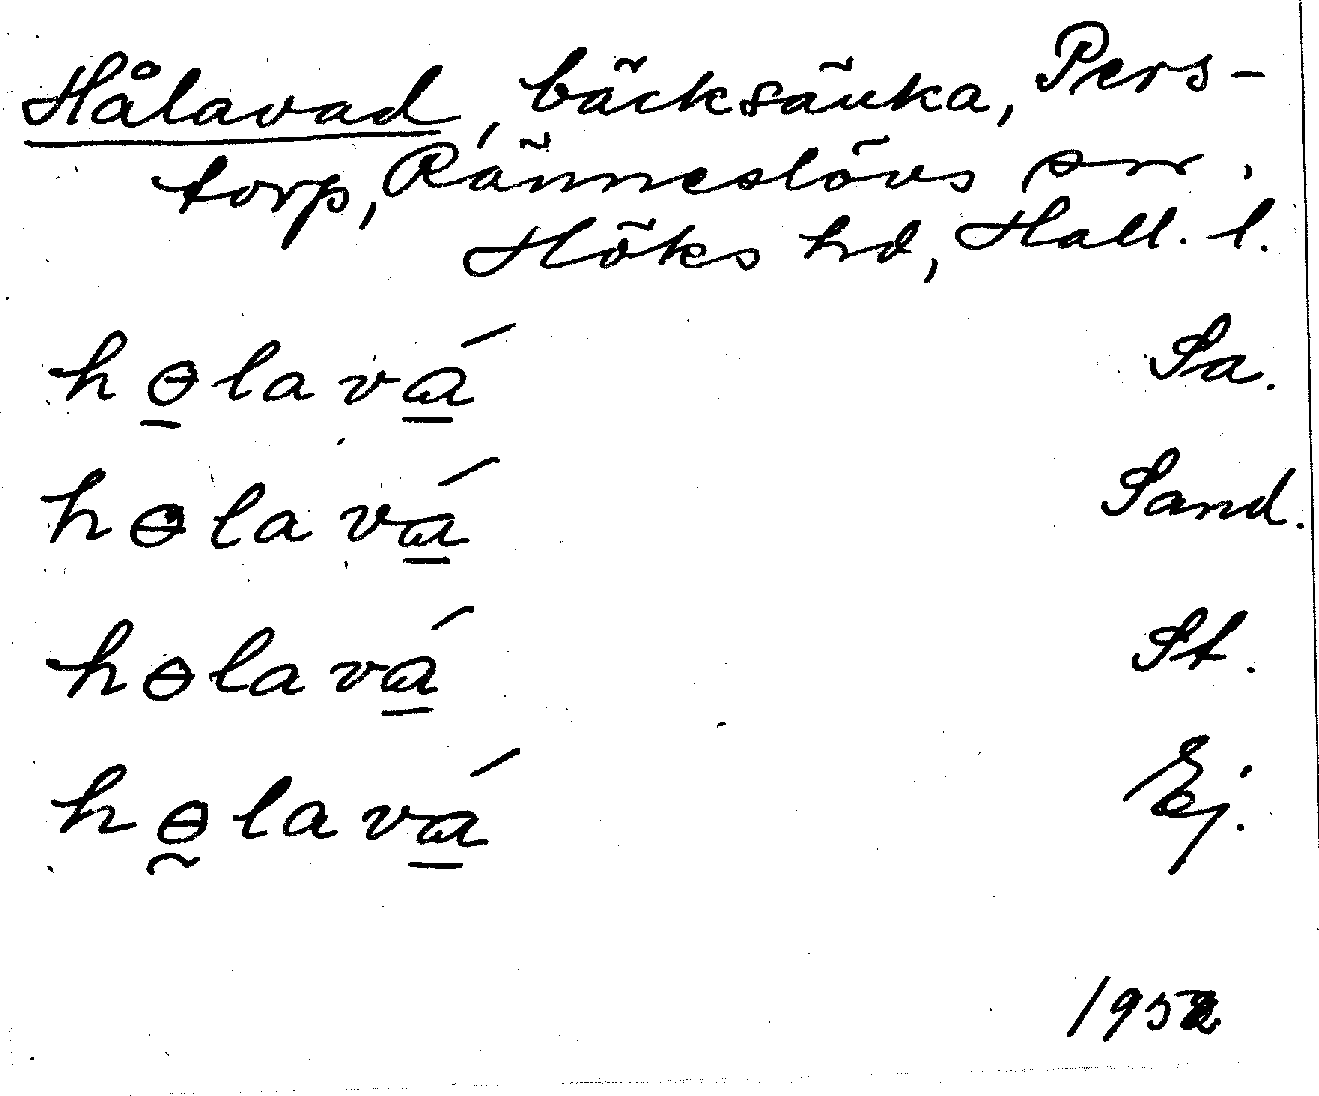 Hålavad, bäcksänka, Pers-
torp, Ränneslövs sn.
Höks hd, Hall. l.
hɵ̱lavá̱ Sa.
hɵlavá̱ Sand.
hɵlavá̱ St.
hɵ̰lavá̱ Ej.
1952